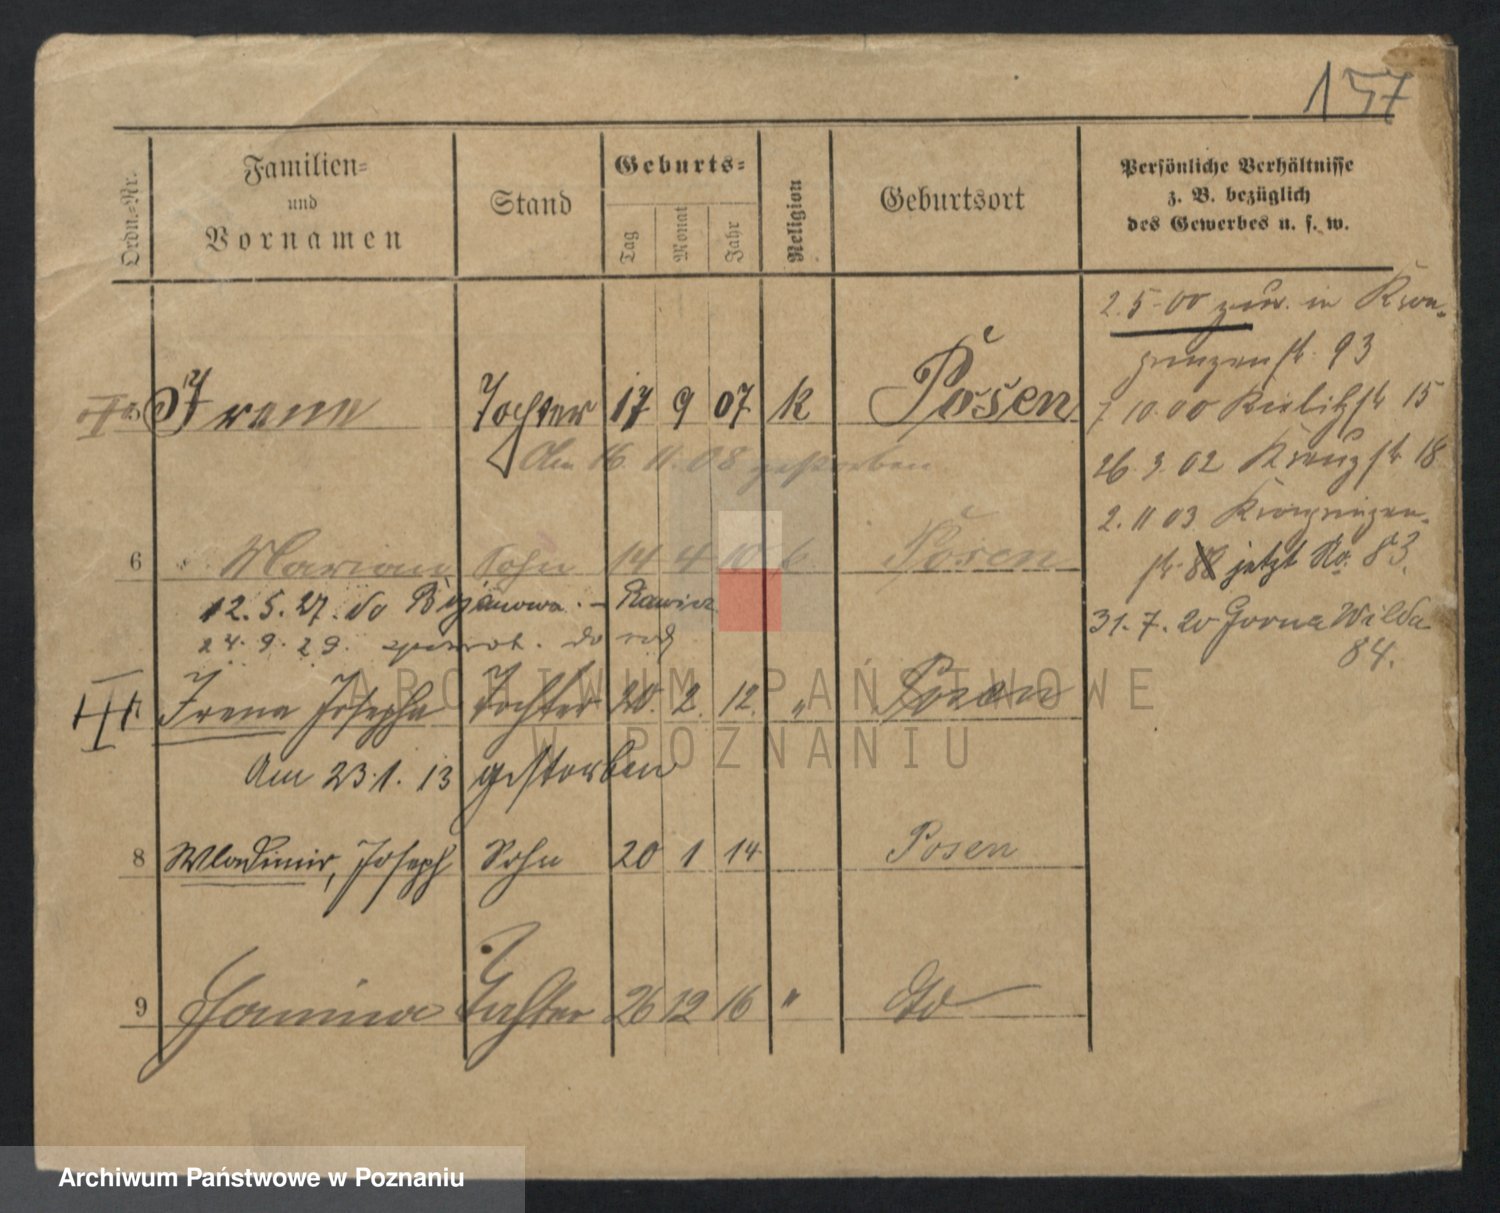 157
Ordn.-Nr.
Familien-
und
Vornamen
Stand
Geburts-
Tag
Monat
Jahr
Religion
Geburtsort
Persönliche Verhältnisse
z. B. bezüglich
des Gewerbes u. s. w.
Irene Tochter 17 9 07 k Posen
Am 16. 11. 08 gestorben
6 Marian Sohn 14 4 10 k Posen
12. 5. 27. do - Rawicz
24. 9. 29. do
7 Irena Josepha Tochter 20. 2. 12. " Posen
Am 23. 1. 13 gestorben
8 Wladimir, Joseph Sohn 20 1 14 Posen
9 Janina Tochter 26 12 16 " do
2. 5. 00 zur. in Kron-
prinzenstr. 93
7 10. 00 str 15
26. 3. 02 Kreuzstr 18
2. 11 03 Kronprinzen-
str. 88 jetzt No. 83.
31. 7. 20 Gorna Wilda
84.
ARCHIWUM PAŃSTWOWE
W POZNANIU
Archiwum Państwowe w Poznaniu